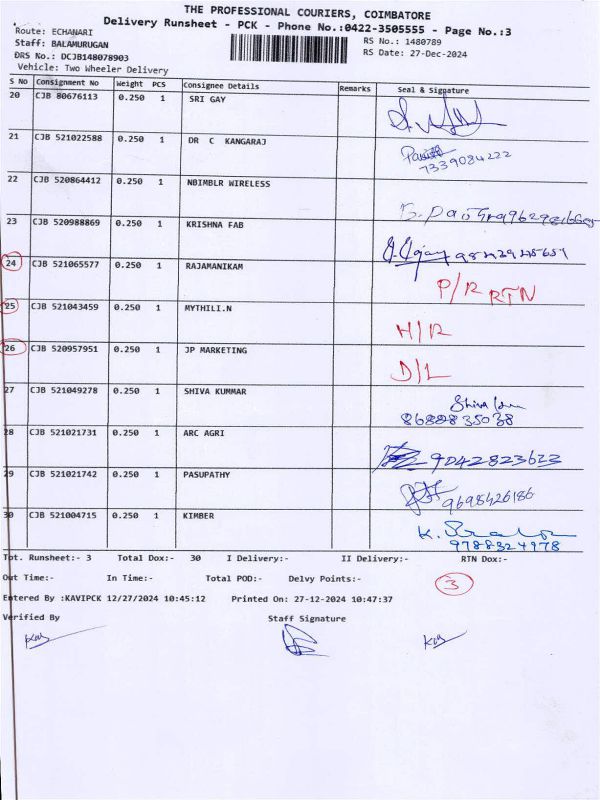 THE PROFESSIONAL COURIERS, COIMBATORE
Delivery Runsheet - PCK - Phone No.:0422-3505555 - Page No.:3
Route: ECHANARI
Staff: BALAMURUGAN
DRS No.: DCJB148078903
Vehicle: Two Wheeler Delivery
RS No.: 1480789
RS Date: 27-Dec-2024
S No Consignment No Weight PCS Consignee Details Remarks Seal & Signature
20 CJB 80676113 0.250 1 SRI GAY
21 CJB 521022588 0.250 1 DR C KANGARAJ
7339084222
22 CJB 520864412 0.250 1 NBIMBLR WIRELESS
23 CJB 520988869 0.250 1 KRISHNA FAB
24 CJB 521065577 0.250 1 RAJAMANIKAM P/R RTN
25 CJB 521043459 0.250 1 MYTHILI.N H/R
26 CJB 520957951 0.250 1 JP MARKETING D/L
27 CJB 521049278 0.250 1 SHIVA KUMMAR Shiva
28 CJB 521021731 0.250 1 ARC AGRI 9042823623
29 CJB 521021742 0.250 1 PASUPATHY 9698426186
30 CJB 521004715 0.250 1 KIMBER K.
9788324978
Tot. Runsheet:- 3 Total Dox:- 30 I Delivery:- II Delivery:- RTN Dox:-
Out Time:- In Time:- Total POD:- Delvy Points:- 3
Entered By :KAVIPCK 12/27/2024 10:45:12 Printed On: 27-12-2024 10:47:37
Verified By Staff Signature